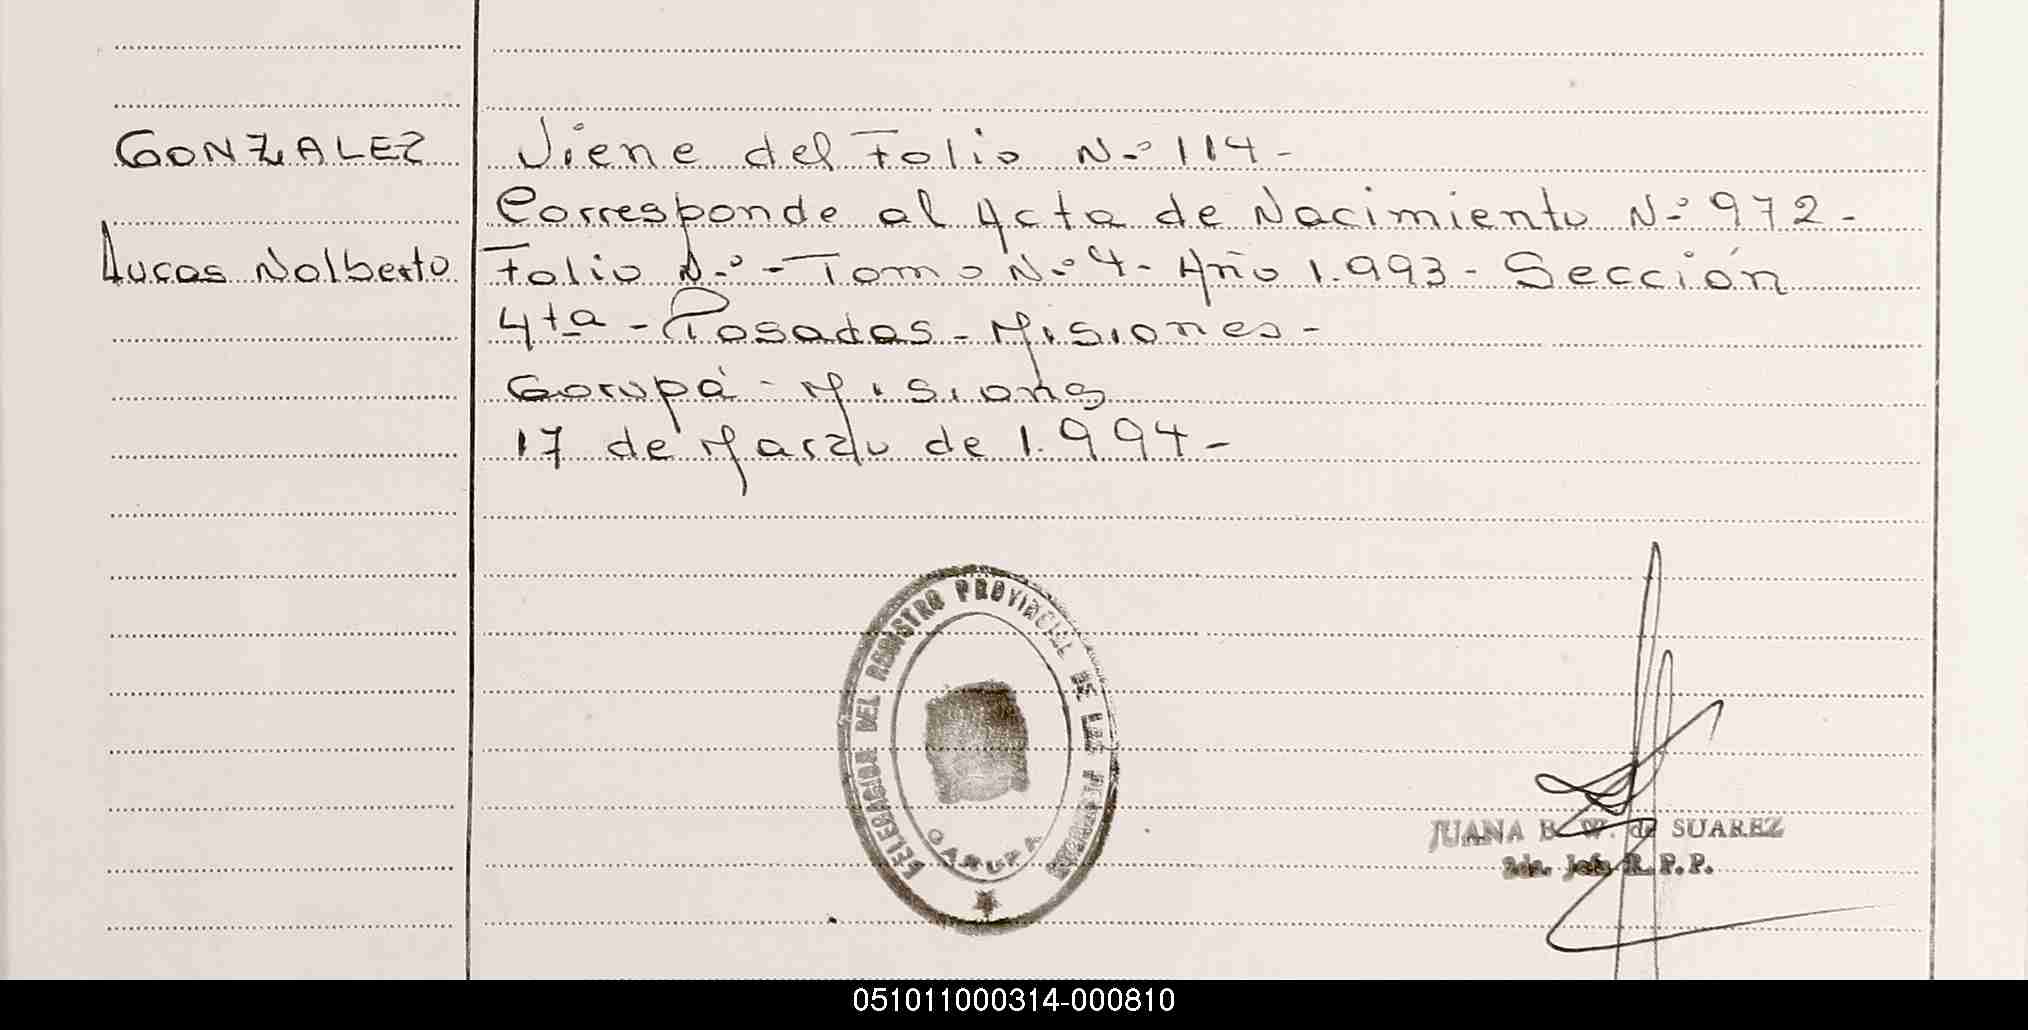 GONZALEZ
Lucas Nolberto
Viene del Folio N.º 114-
Corresponde al Acta de Nacimiento N.º 972-
Folio N.º - Tomo N.º 4- Año 1.993- Sección
4ta - Posadas - Misiones -
Garupá - Misions
17 de Marzo de 1.994-
DELEGACION DEL REGISTRO PROVINCIAL DE LAS PERSONAS
GARUPA
JUANA B. W. de SUAREZ
2da. Jefe R.P.P.
051011000314-000810